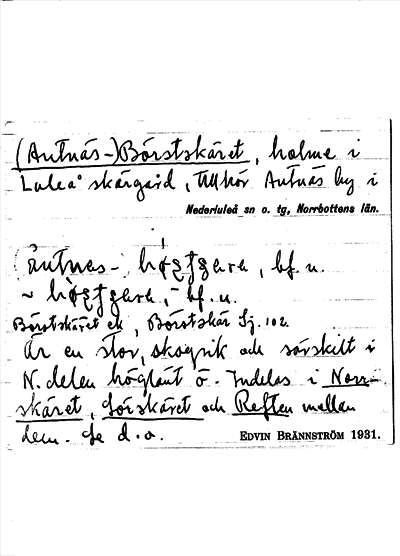 (Antnäs-)Börstskäret, holme i
Luleå skärgård, tillhör Antnäs by i
Nederluleå sn o. tg, Norrbottens län.
bf. n.
~ bf. n.
Börstskäret ek, Börstskär Sj. 102.
Är en stor, skogrik och särskilt i
N. delen höglänt ö. Indelas i Norr-
skäret, Sörskäret och Reften mellan
dem. Se d. o.
EDVIN BRÄNNSTRÖM 1931.